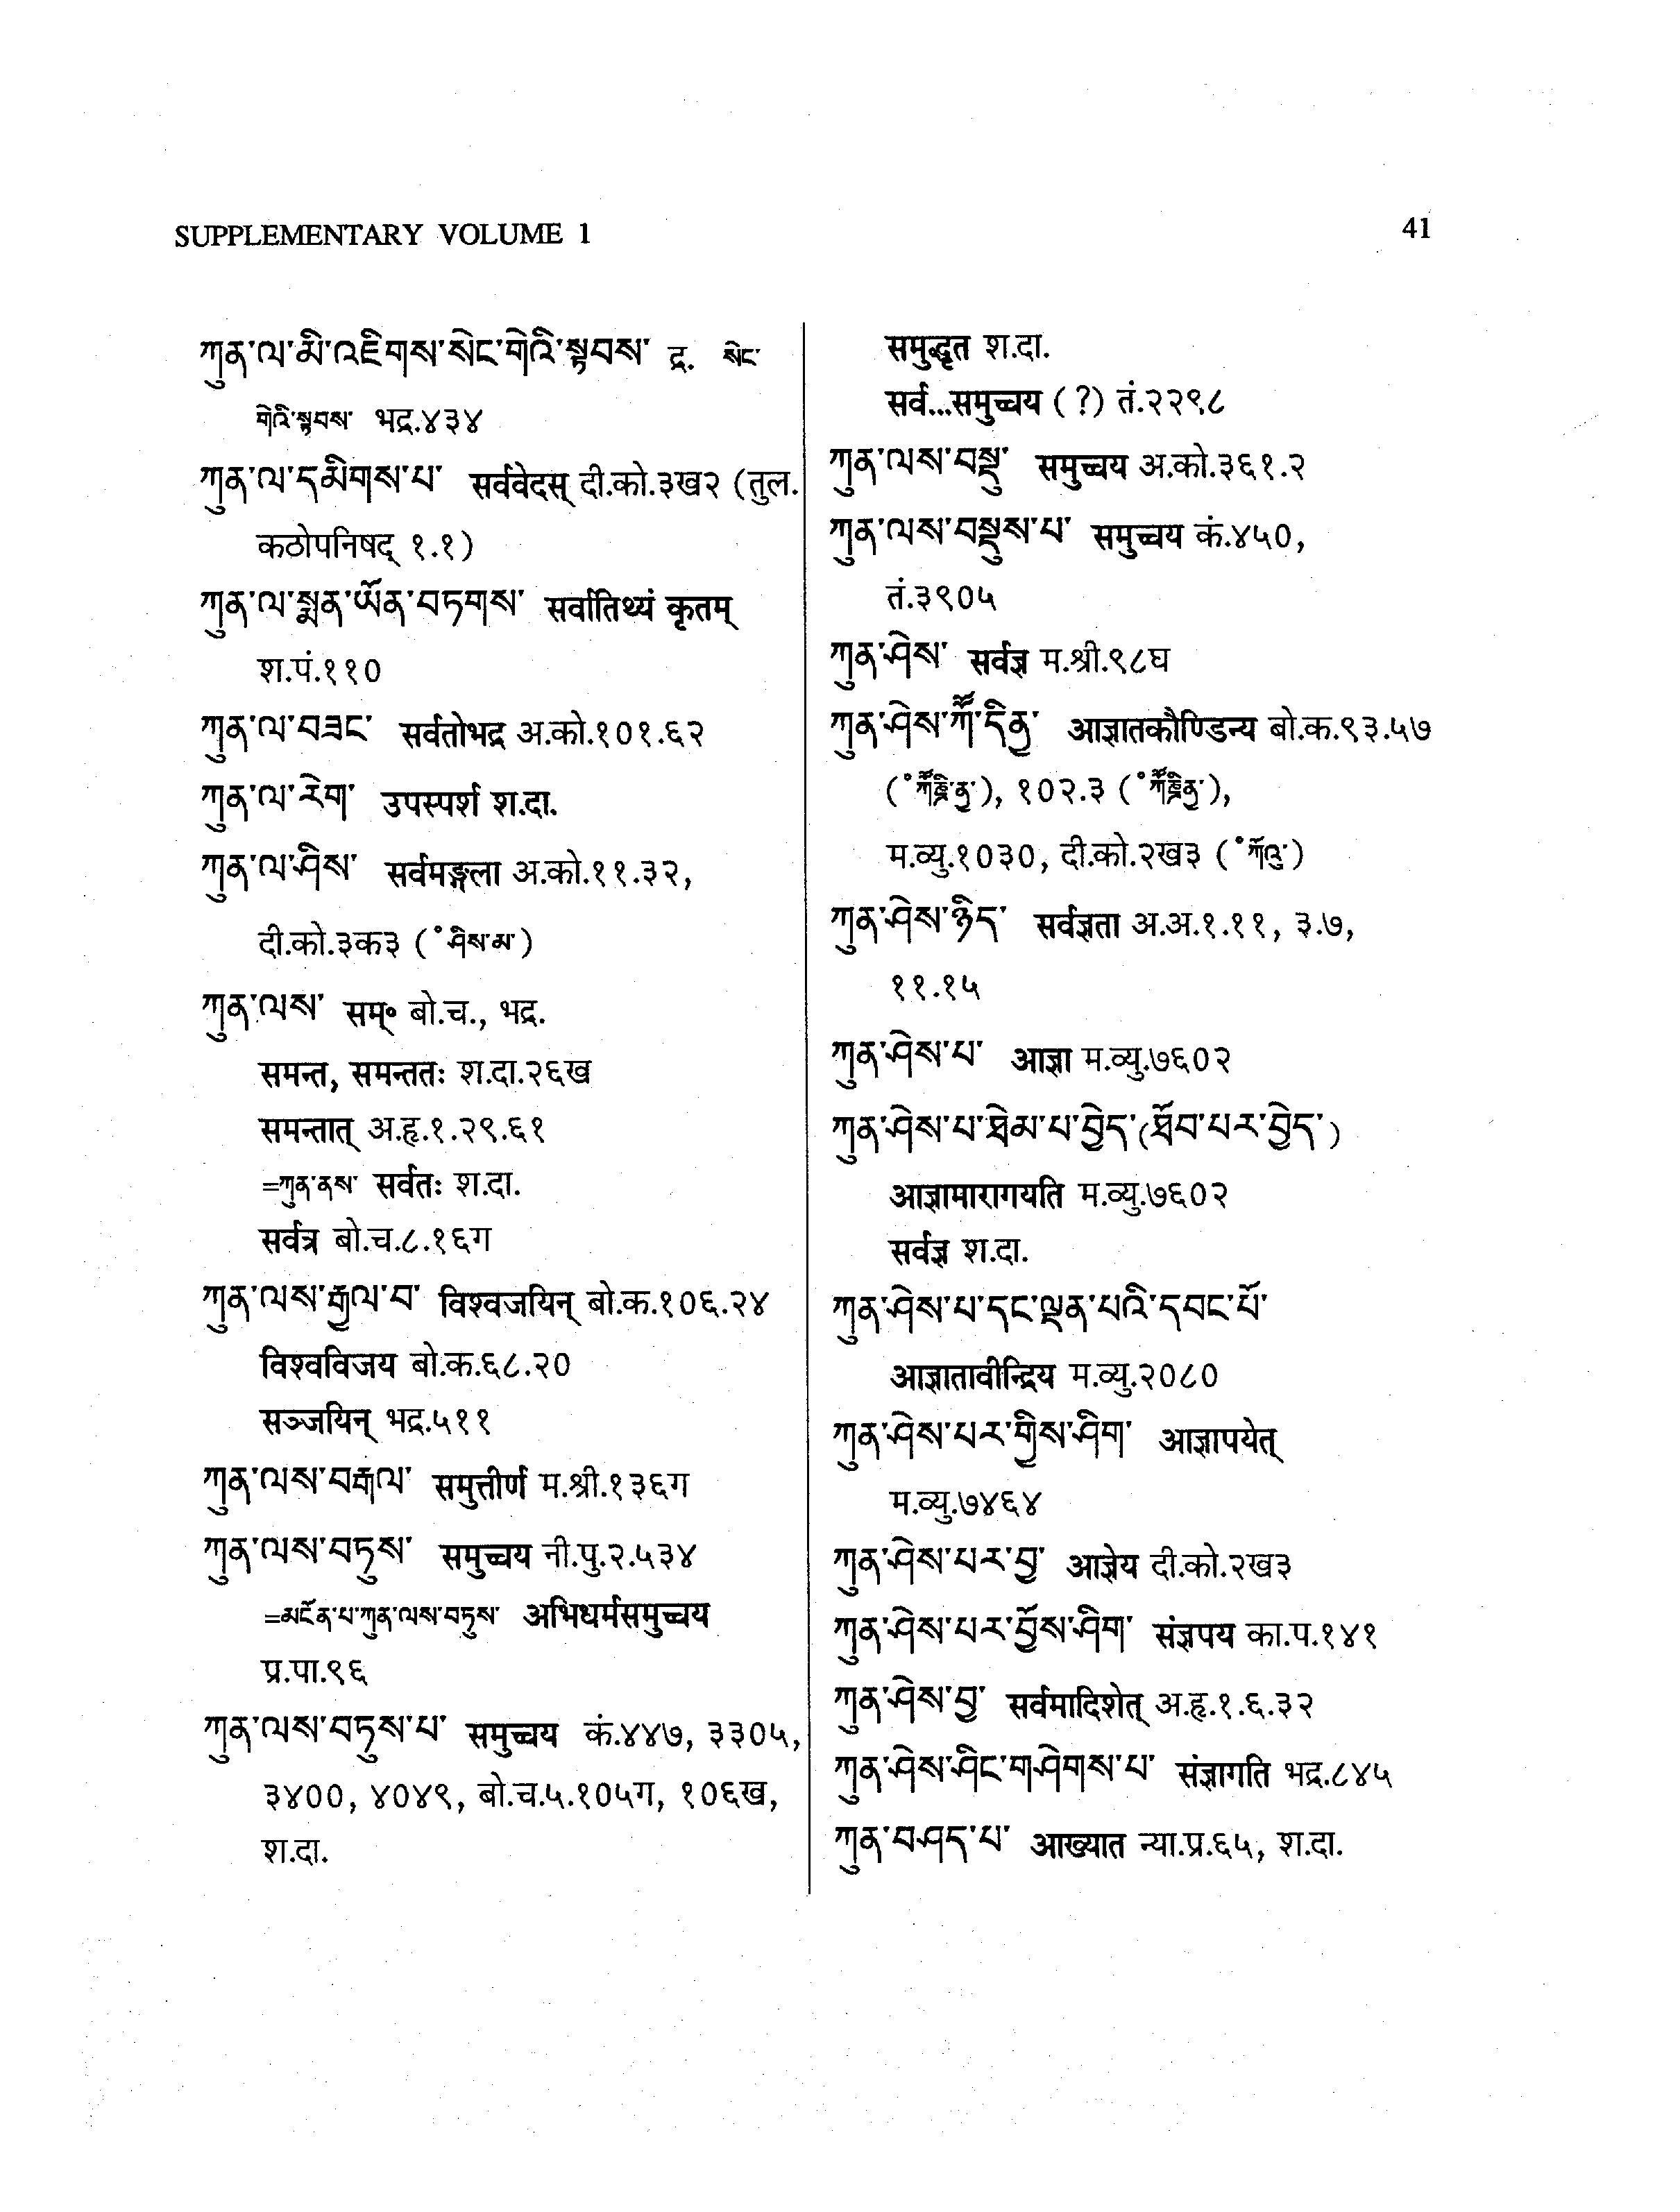 SUPPLEMENTARY VOLUME 1
41
ཀུན་ལ་མི་འཇིགས་སེང་གེའི་སྟབས་ द्र. སེང་
གེའི་སྟབས་ भद्र.४३४
ཀུན་ལ་དམིགས་པ་ सर्ववेदस् दी.को.३ख२ (तुल.
कठोपनिषद् १.१)
ཀུན་ལ་སྨན་ཡོན་བཏགས་ सर्वातिथ्यं कृतम्
श.पं.११०
ཀུན་ལ་བཟང་ सर्वतोभद्र अ.को.१०१.६२
ཀུན་ལ་རེག་ उपस्पर्श श.दा.
ཀུན་ལ་ཤིས་ सर्वमङ्गला अ.को.११.३२,
दी.को.३क३ (॰ཤིས་མ་)
ཀུན་ལས་ सम्॰ बो.च., भद्र.
समन्त, समन्ततः श.दा.२६ख
समन्तात् अ.हृ.१.२९.६१
=ཀུན་ནས་ सर्वतः श.दा.
सर्वत्र बो.च.८.१६ग
ཀུན་ལས་རྒྱལ་བ་ विश्वजयिन् बो.क.१०६.२४
विश्वविजय बो.क.६८.२०
सञ्जयिन् भद्र.५११
ཀུན་ལས་བརྒལ་ समुत्तीर्ण म.श्री.१३६ग
ཀུན་ལས་བཏུས་ समुच्चय नी.पु.२.५३४
=མངོན་པ་ཀུན་ལས་བཏུས་ अभिधर्मसमुच्चय
प्र.पा.९६
ཀུན་ལས་བཏུས་པ་ समुच्चय कं.४४७, ३३०५,
३४००, ४०४९, बो.च.५.१०५ग, १०६ख,
श.दा.
समुद्धृत श.दा.
सर्व...समुच्चय (?) तं.२२९८
ཀུན་ལས་བསྡུ་ समुच्चय अ.को.३६१.२
ཀུན་ལས་བསྡུས་པ་ समुच्चय कं.४५०,
तं.३९०५
ཀུན་ཤེས་ सर्वज्ञ म.श्री.९८घ
ཀུན་ཤེས་ཀཽ་དིནྱ་ आज्ञातकौण्डिन्य बो.क.९३.५७
(॰ཀཽཎྜི་ནྱ་), १०२.३ (॰ཀཽཎྜིནྱ་),
म.व्यु.१०३०, दी.को.२ख३ (॰)
ཀུན་ཤེས་ཉིད་ सर्वज्ञता अ.अ.१.११, ३.७,
११.१५
ཀུན་ཤེས་པ་ आज्ञा म.व्यु.७६०२
ཀུན་ཤེས་པ་ཐེམ་པ་བྱེད་(ཐོབ་པར་བྱེད་)
आज्ञामारागयति म.व्यु.७६०२
सर्वज्ञ श.दा.
ཀུན་ཤེས་པ་དང་ལྡན་པའི་དབང་པོ་
आज्ञातावीन्द्रिय म.व्यु.२०८०
ཀུན་ཤེས་པར་གྱིས་ཤིག་ आज्ञापयेत्
म.व्यु.७४६४
ཀུན་ཤེས་པར་བྱ་ आज्ञेय दी.को.२ख३
ཀུན་ཤེས་པར་བྱོས་ཤིག་ संज्ञपय का.प.१४१
ཀུན་ཤེས་བྱ་ सर्वमादिशेत् अ.हृ.१.६.३२
ཀུན་ཤེས་ཤིང་གཤེགས་པ་ संज्ञागति भद्र.८४५
ཀུན་བཤད་པ་ आख्यात न्या.प्र.६५, श.दा.